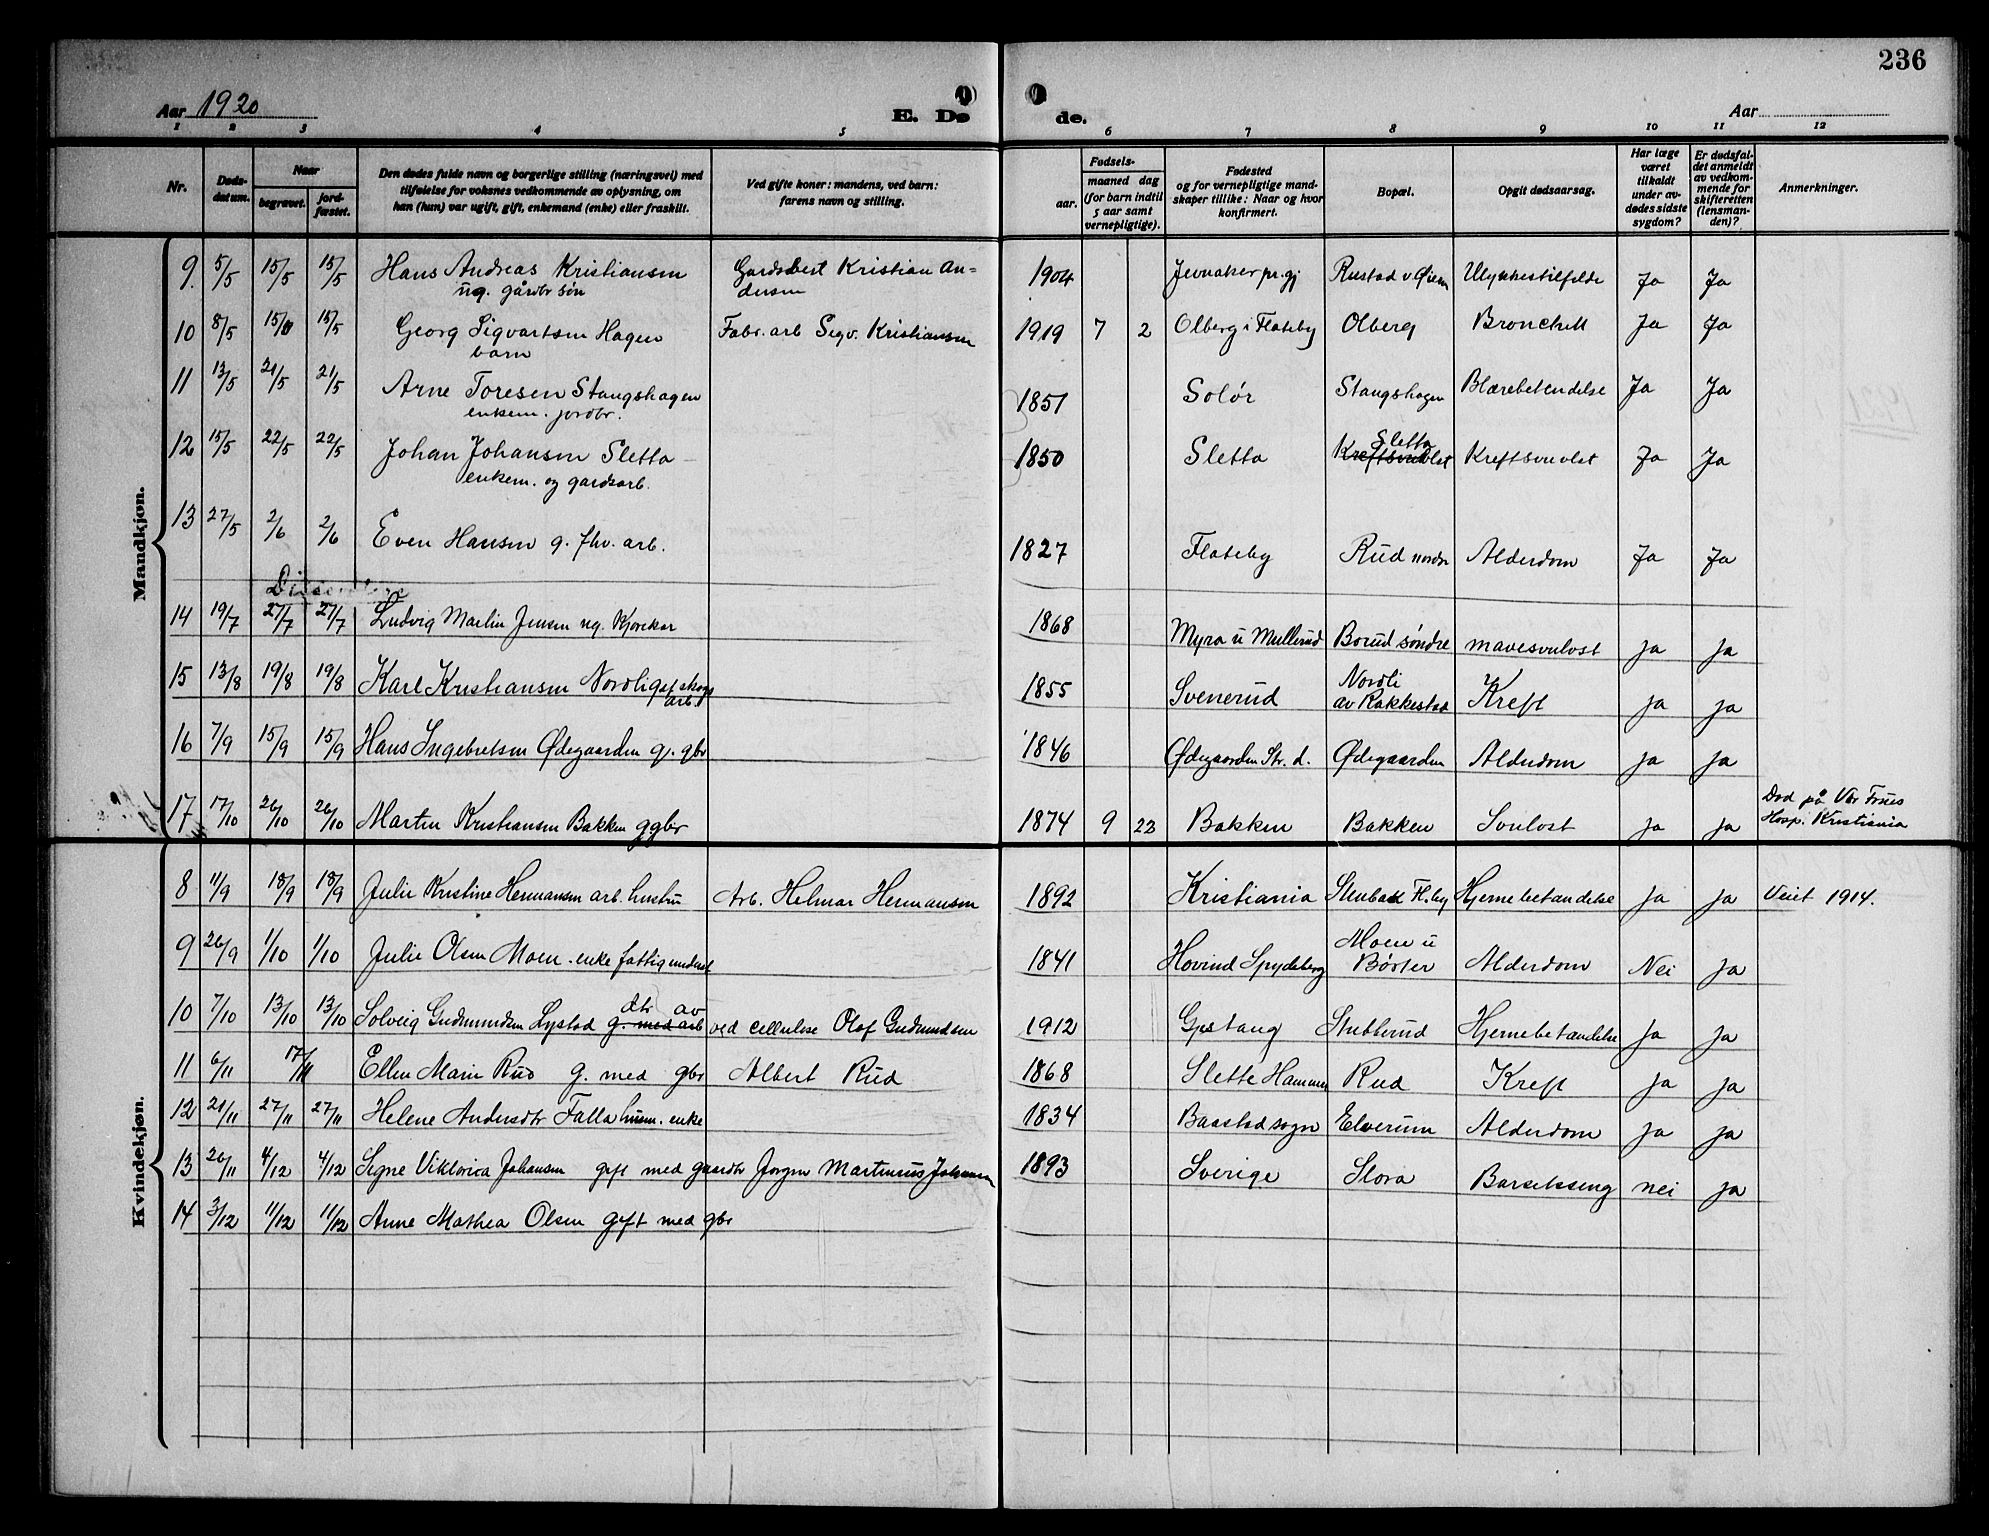 236
Aar 1920
E. Dø
de.
Aar
1 2 3 4 5 6 7 8 9 10 11 12
Nr.
Døds-
datum.
Naar
begravet.
jord-
fæstet.
Den dødes fulde navn og borgerlige stilling (næringsvei) med
tilføielse for voksnes vedkommende av oplysning, om
han (hun) var ugift, gift, enkemand (enke) eller fraskilt.
Ved gifte koner: mandens, ved barn:
farens navn og stilling.
Fødsels-
aar.
maaned dag
(for barn indtil
5 aar samt
vernepligtige).
Fødested
og for vernepligtige mand-
skaper tillike: Naar og hvor
konfirmert.
Bopæl.
Opgit dødsaarsag.
Har læge
været
tilkaldt
under av-
dødes sidste
sygdom?
Er dødsfal-
det anmeldt
av vedkom-
mende for
skifteretten
(lensman-
den)?
Anmerkninger.
Mandkjøn.
9. 5/5 15/5 15/5 Hans Andreas Kristiansen Kristian An- 1904 Jevnaker pr.gj Rustad v Øieren Ulykkestilfelde Ja Ja
ug. gårdbr søn dersen
10 8/5 15/5 Georg Sigvartsen Hagen Fabr. arb Sigv. Kristiansen 1919 7 2 Olberg i Flateby Olberg Bronchitt Ja Ja
barn
11 13/5 21/5 21/5 Arne Toresen Stangshagen 1851 Solør Stangshagen Blærebetendelse Ja Ja
enkem. jordbr.
12 15/5 22/5 22/5 Johan Johansen Sletta 1850 Sletta Sletta Kreftsvulst Ja Ja
enkem. og gardsarb.
13 27/5 2/6 2/6 Even Hansen g. fhv. arb. 1827 Flateby Rud nordre Alderdom Ja Ja
Dissentere
14 19/7 27/7 27/7 Ludvig Martin Jensen ug. 1868 Myra u Mullerud Borud søndre mavesvulst ja ja
15 13/8 19/8 19/8 Karl Kristiansen Nordli gift skogs 1855 Svenerud Nordli Kreft ja ja
arb. av Rakkestad
16 7/9 15/9 15/9 Hans Ingebretsen Ødegaarden g. gbr 1846 Ødegaarden Str. d. Ødegaarden Alderdom ja ja
17 17/10 26/10 26/10 Martin Kristiansen Bakken g gbr 1874 9 23 Bakken Bakken Svulst ja ja Død på Vor Frues
Hosp. Kristiania
Kvindekjøn.
8 11/9 18/9 18/9 Julie Kristine Hermansen arb. hustru Arb. Helmar Hermansen 1892 Kristiania Stenbak Fl.by Hjernebetandelse Ja ja Viet 1914.
9 26/9 1/10 1/10 Julie Olsen Moen. enke fattigunderst 1841 Hovind Spydeberg Moen u Alderdom Nei ja
Børter
10 7/10 13/10 13/10 Solveig Gudmundsen Lystad dtr av g. med arb ved cellulose Olaf Gudmundsen 1912 Stubberud Hjernebetandelse ja ja
11 6/11 17/11 Ellen Marie Rud g. med gbr Albert Rud 1868 Slette Hammer Rud Kreft ja ja
12 21/11 27/11 27/11 Helene Andersdtr Falla husm. enke 1834 Baastad sogn Elverum Alderdom ja ja
13 26/11 4/12 4/12 Signe Viktoria Johansen gift med gaardbr Jørgen Martinius Johansen 1893 Sverige Slora Barselsseng nei ja
14 3/12 11/12 11/12 Anne Mathea Olsen gift med gbr